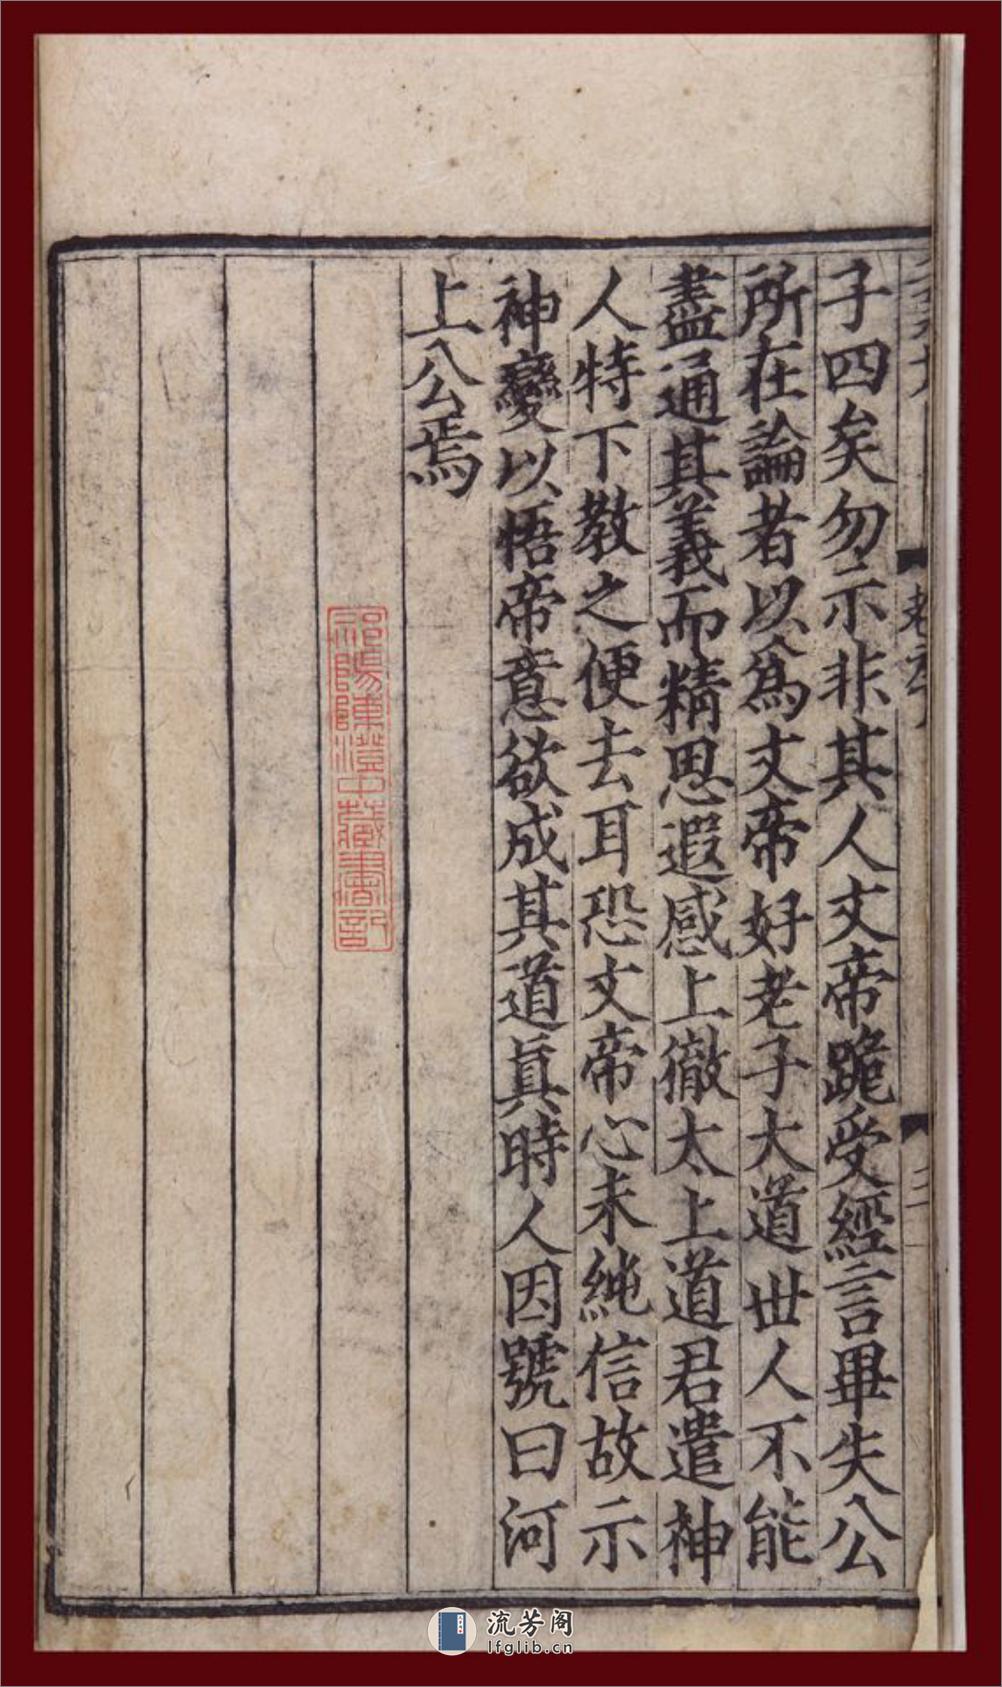 子四矣勿示非其人文帝跪受經言畢失公
所在論者以爲文帝好老子大道世人不能
盡通其義而精思遐感上徹太上道君遣神
人特下教之便去耳恐文帝心未純信故示
神變以悟帝意欲成其道真時人因號曰河
上公焉
祁陽陳澄中藏書記
三
流芳阁
lfglib.cn